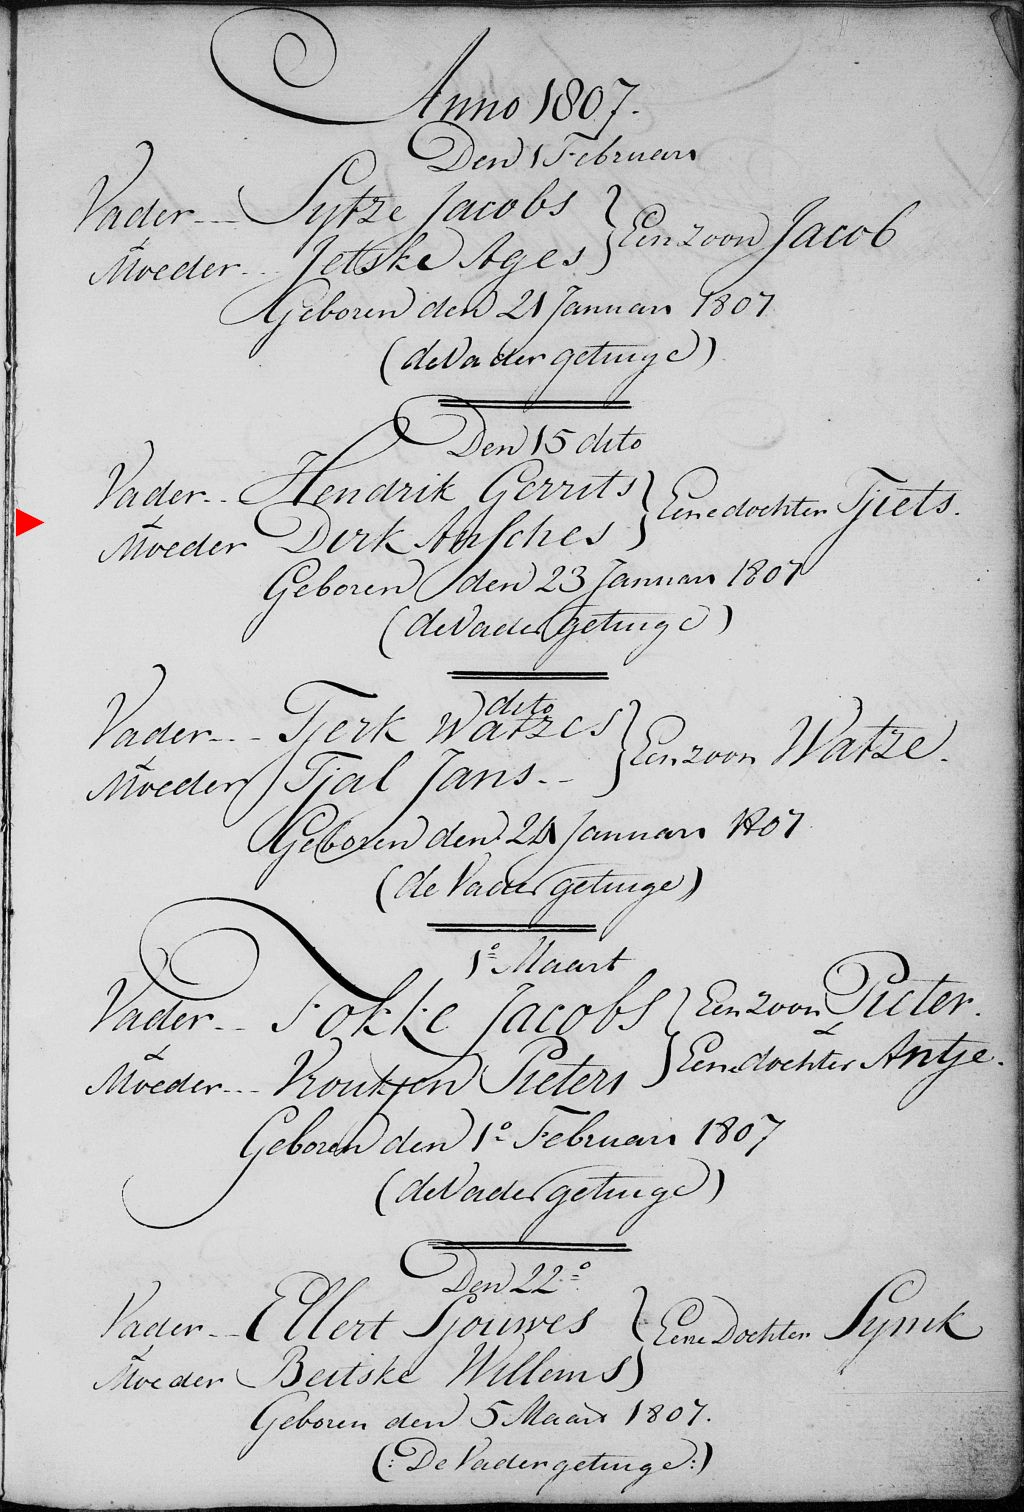 Anno 1807.
Den 1 Februari
Vader Sytze Jacobs
Een zoon Jacob
&
Moeder Jetske Ages
Geboren den 21 Januari 1807
(de Vader getuige)
Den 15 dito
Vader Hendrik Gerrits
Eene dochter Tjiets.
&
Moeder Dirk
Geboren den 23 Januari 1807
(de Vader getuige)
dito
Vader Tjerk Watzes
Een zoon Watze.
&
Moeder Tjal Jans
Geboren den Januari 1807
(de Vader getuige)
1º Maart
Vader Fokke Jacobs
Een zoon Pieter.
&
&
Eene dochter Antje.
Moeder Pieters
Geboren den 1º Februari 1807
(de Vader getuige)
Den 22º
Vader Ellert Sjouwes
Eene Dochter Symk
&
Moeder Beitske Willems
Geboren den 5 Maart 1807.
(: De Vader getuige :)